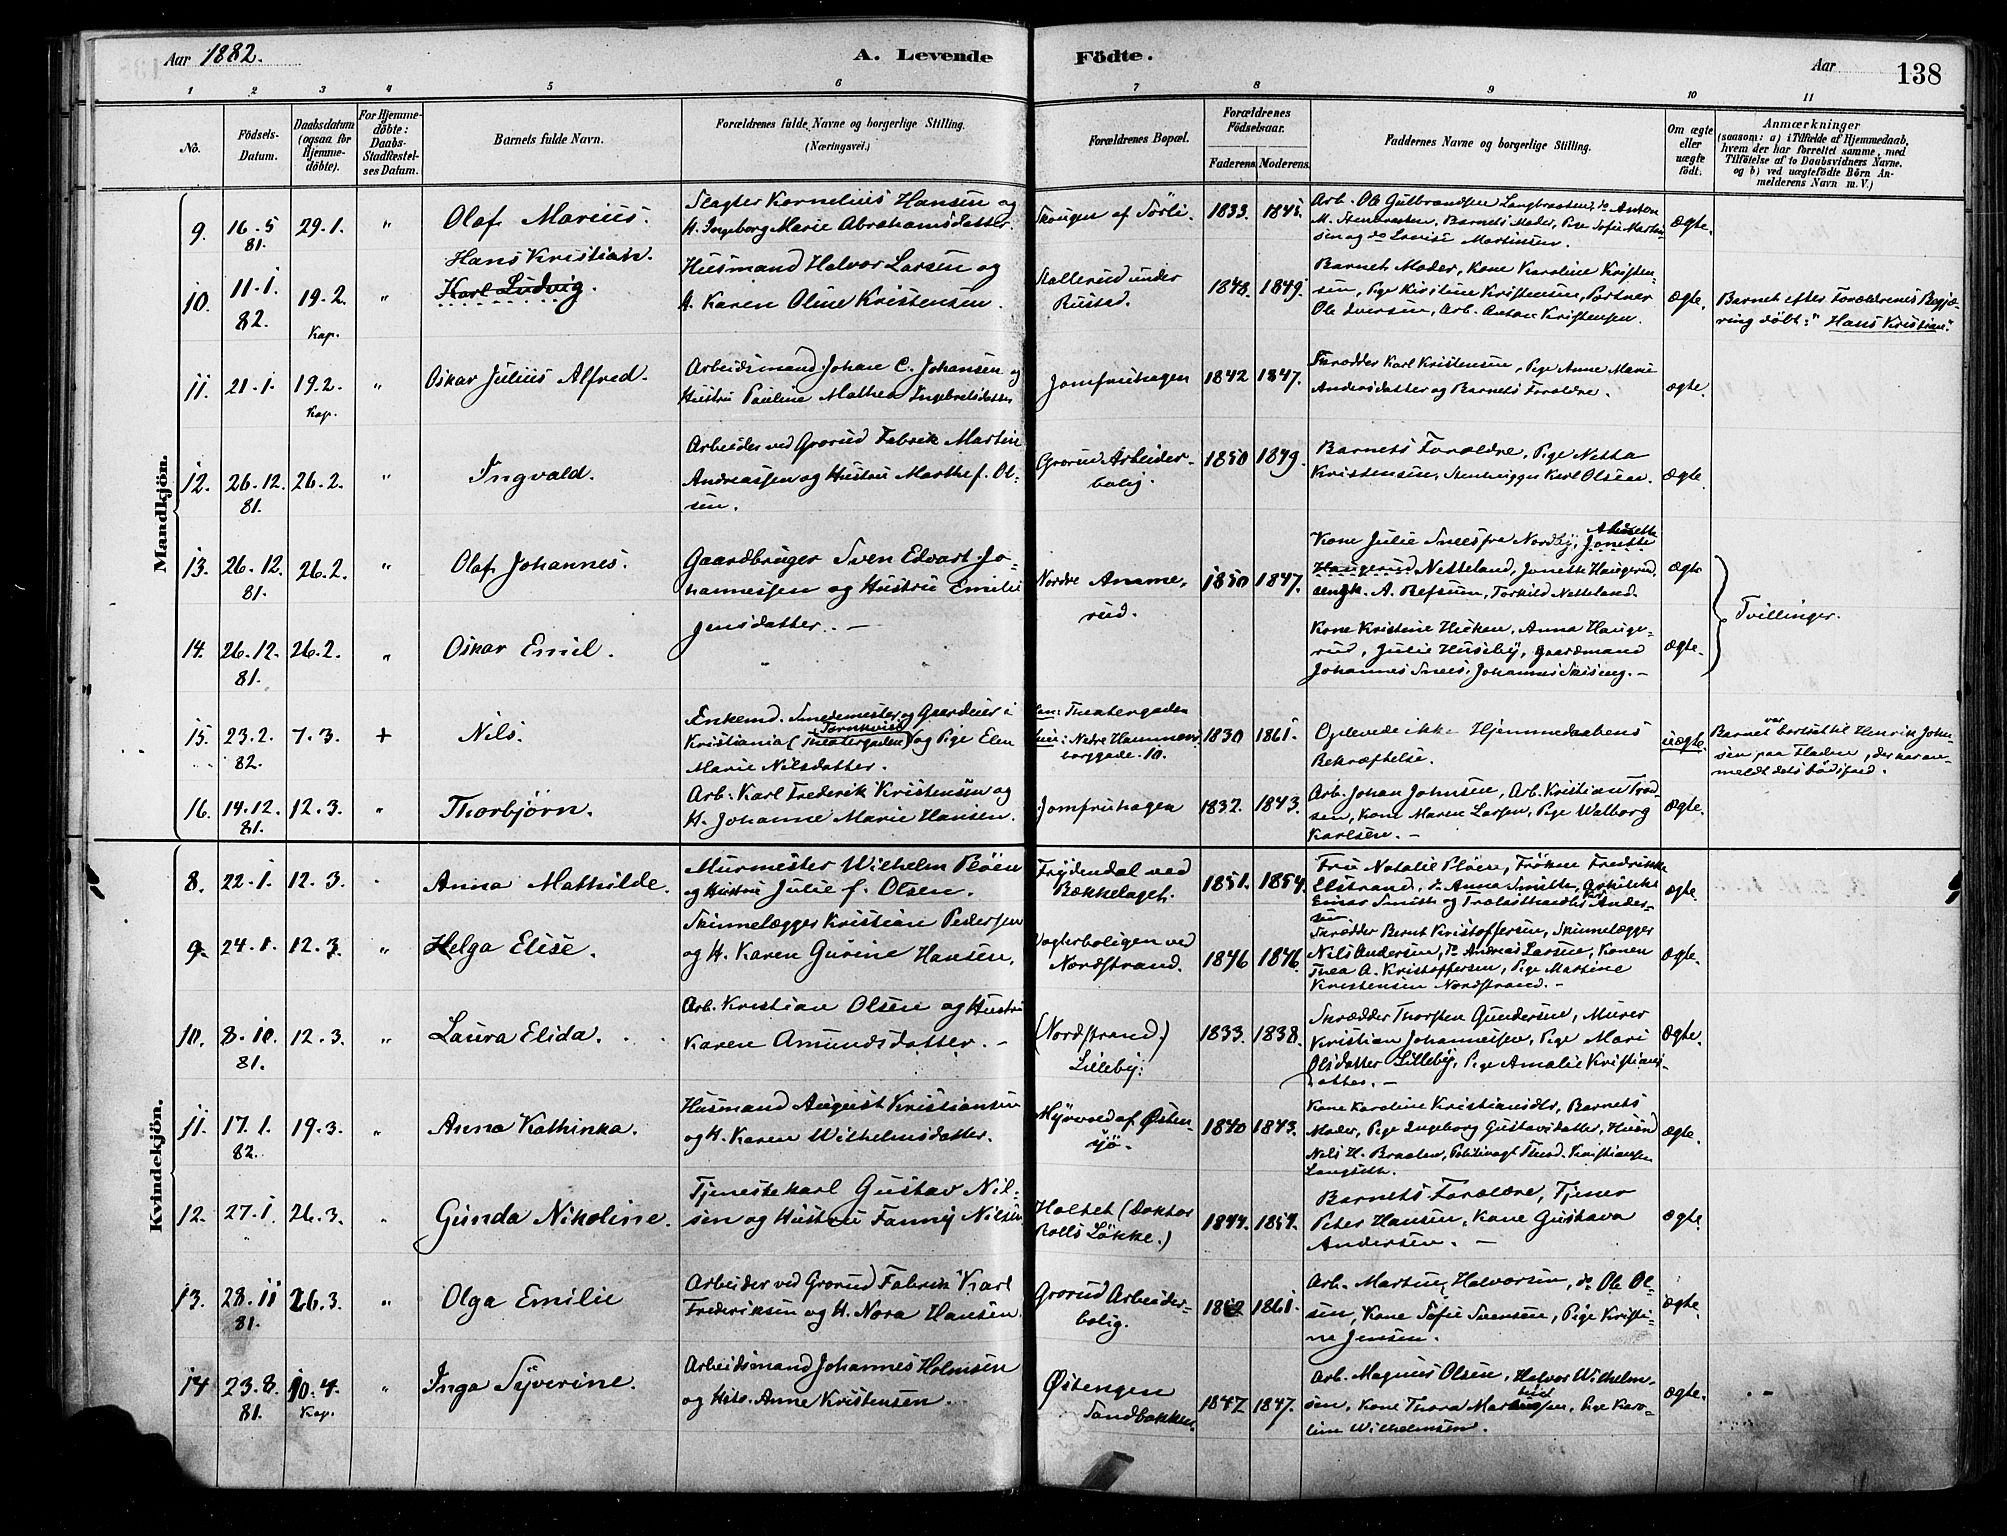 Aar 1882.
A. Levende Födte.
Aar
138
1 2 3 4 5 6 7 8 9 10 11
No.
Födsels-Datum.
Daabsdatum (ogsaa for Hjemmedöbte).
For Hjemmedöbte: Daabs-Stadfæstelses Datum.
Barnets fulde Navn.
Forældrenes fulde Navne og borgerlige Stilling.
(Næringsvei.)
Forældrenes Bopæl.
Forældrenes Födselsaar.
Faderens. Moderens.
Faddernes Navne og borgerlige Stilling.
Om ægte eller uægte födt.
Anmærkninger
(saasom: a) i Tilfælde af Hjemmedaab, hvem der har forrettet samme, med Tilföielse af to Daabsvidners Navne, og b) ved uægtefödte Börn Anmelderens Navn m. V.)
Mandkjön.
9. 16-5 81. 29.1. " Olaf Marius.
Slagter Kornelius Hansen og
H. Ingeborg Marie Abrahamsdatter.
Skougen af Sörli. 1833. 1845.
Arb. Ole Gulbrandsen Langbraaten, do Anton
M. Stenbraaten, Barnets Moder, Pige Sofie Martin-
sen og do Lovise Martinsen.
ægte.
10. 11-1. 82. 19.2. Kap. " Hans Kristian.
Karl Ludvig.
Husmand Halvor Larsen og
H. Karen Oline Kristensen.
Stallerud under
Rustad.
1848. 1849.
Barnets Moder, Kone Karoline Kristen-
sen, Pige Kirstine Kristensen, Portner
Ole Iversen, Arb. Anton Kristensen.
ægte.
Barnet efter Forældrenes Begjæ-
ring döbt: "Hans Kristian".
11. 21-1. 19.2. Kap. " Oskar Julius Alfred.
Arbeidsmand Johan C. Johansen og
Hustru Pauline Mathea Ingebretsdatter
Jomfruhagen 1842 1847.
Skrædder Karl Kristensen, Pige Anne Marie
Andersdatter og Barnets Forældre.
ægte.
12. 26.12. 81. 26.2. " Ingvald.
Arbeider ved Grorud Fabrik Martin
Andreassen og Hustru Marthe f. Ol-
sen.
Grorud Arbeider-
bolig.
1850 1849.
Barnets Forældre, Pige Netta
Kristensen, Stenhugger Karl Olsen.
ægte.
13. 26.12. 81. 26.2. " Olaf Johannes.
Gaardbruger Sven Edvart Jo-
hannessen og Hustru Emilie
Jensdatter. —
Nordre Amme-
rud.
1850 1847.
Kone Julie Snees fra Nordby, Jonette
Haugerud Netteland, Jonette Haugerud,
ungk. A. Refsum, Torkild Netteland.
ægte
Tvillinger.
14. 26.12. 81. 26.2. " Oskar Emil. "
Kone Kristine Hicken, Anna Hauge-
rud, Julie Huseby, Gaardmand
Johannes Snees, Johannes Skiseng. —
ægte.
15. 23.2. 82. 7.3. + Nils.
Enkemd. Smedemester og Gaardeier i
Kristiania (Theatergaden) Törnkvist og Pige Elen
Marie Nilsdatter.
Han: Theatergaden
hun: Nedre Hammers-
borggade 10.
1830 1861.
Oplevede ikke Hjemmedaabens
Bekræftelse.
uægte.
Barnet var bortsat til Henrik Johan-
sen paa Fladen, der har an-
meldt dets Dödsfald.
16. 14.12. 81. 12.3. " Thorbjörn.
Arb. Karl Frederik Kristensen og
H. Johanne Marie Hansen.
Jomfruhagen 1832. 1843.
Arb. Johan Johnsen, Arb. Kristian Trod-
sen, Kone Maren Larsen, Pige Walborg
Karlsen. —
ægte.
Kvindekjön.
8. 22-1. 12.3. Anna Mathilde.
Murmester Wilhelm Plöen
og Hustru Julie f. Olsen.
Frydendal ved
Bækkelaget.
1851. 1854.
Fru Natalie Plöen, Fröken Fredrikke
Elstrand, do Anna Smith, Arkitekt
Einar Smith og Trælasthandler Anders-
sen
ægte.
9. 24.1. 12.3. " Helga Elise.
Skinnelægger Kristian Pedersen
og H. Karen Gurine Hansen.
Vogterboligen ved
Nordstrand.
1846 1846.
Skrædder Bernt Kristoffersen, Skinnelægger
Nils Andersen, do Andreas Larsen, Konen
Thea A. Kristoffersen, Pige Martine
Kristensen Nordstrand. —
ægte.
10. 8-10. 81. 12.3. " Laura Elida.
Arb. Kristian Olsen og Hustru
Karen Amundsdatter. —
(Nordstrand.)
Lilleby.
1833. 1838.
Skrædder Thorsten Gundersen, Murer
Kristian Johannesen, Pige Mari
Olsdatter Lilleby, Pige Amalie Kristians-
datter. —
ægte.
11. 17.1. 82. 19.3. " Anna Kathinka.
Husmand August Kristiansen
og H. Karen Wilhelmsdatter.
Myrvold af Østen-
sjø.
1840 1843.
Kone Karoline Kristiansdtr, Barnets
Moder, Pige Ingeborg Gustavsdatter, Husmd
Nils H. Braaten, Politivagt Thvd. Kristiansen
Langseth.
ægte.
12. 27.1. 26.3. " Gunda Nikoline.
Tjenestekarl Gustav Nil-
sen og Hustru Fanny Nilsen
Holtet (Doktor
Rolls Løkke.)
1844. 1854.
Barnets Forældre, Tjener
Peter Hansen, Kone Gustava
Andersen. —
ægte.
13. 28.11 81. 26.3. " Olga Emilie
Arbeider ved Grorud Fabrik Karl
Frederiksen og H. Nora Hansen.
Grorud Arbeider-
bolig.
1861.
Arb. Martin Halvorsen, do Ole Ol-
sen, Kone Sofie Svensen, Pige Kristi-
ne Jensen.
ægte.
14 23.8. 81. 10.4. Kap. " Inga Syverine.
Arbeidsmand Johannes Holmsen
og Hstr. Anne Kristensen.
Østengen
Sandbakken.
1847 1847.
Arb. Magnus Olsen, Halvor Wilhelm-
sen, Kone Thora, Pige Karo-
line Wilhelmsen.
ægte.